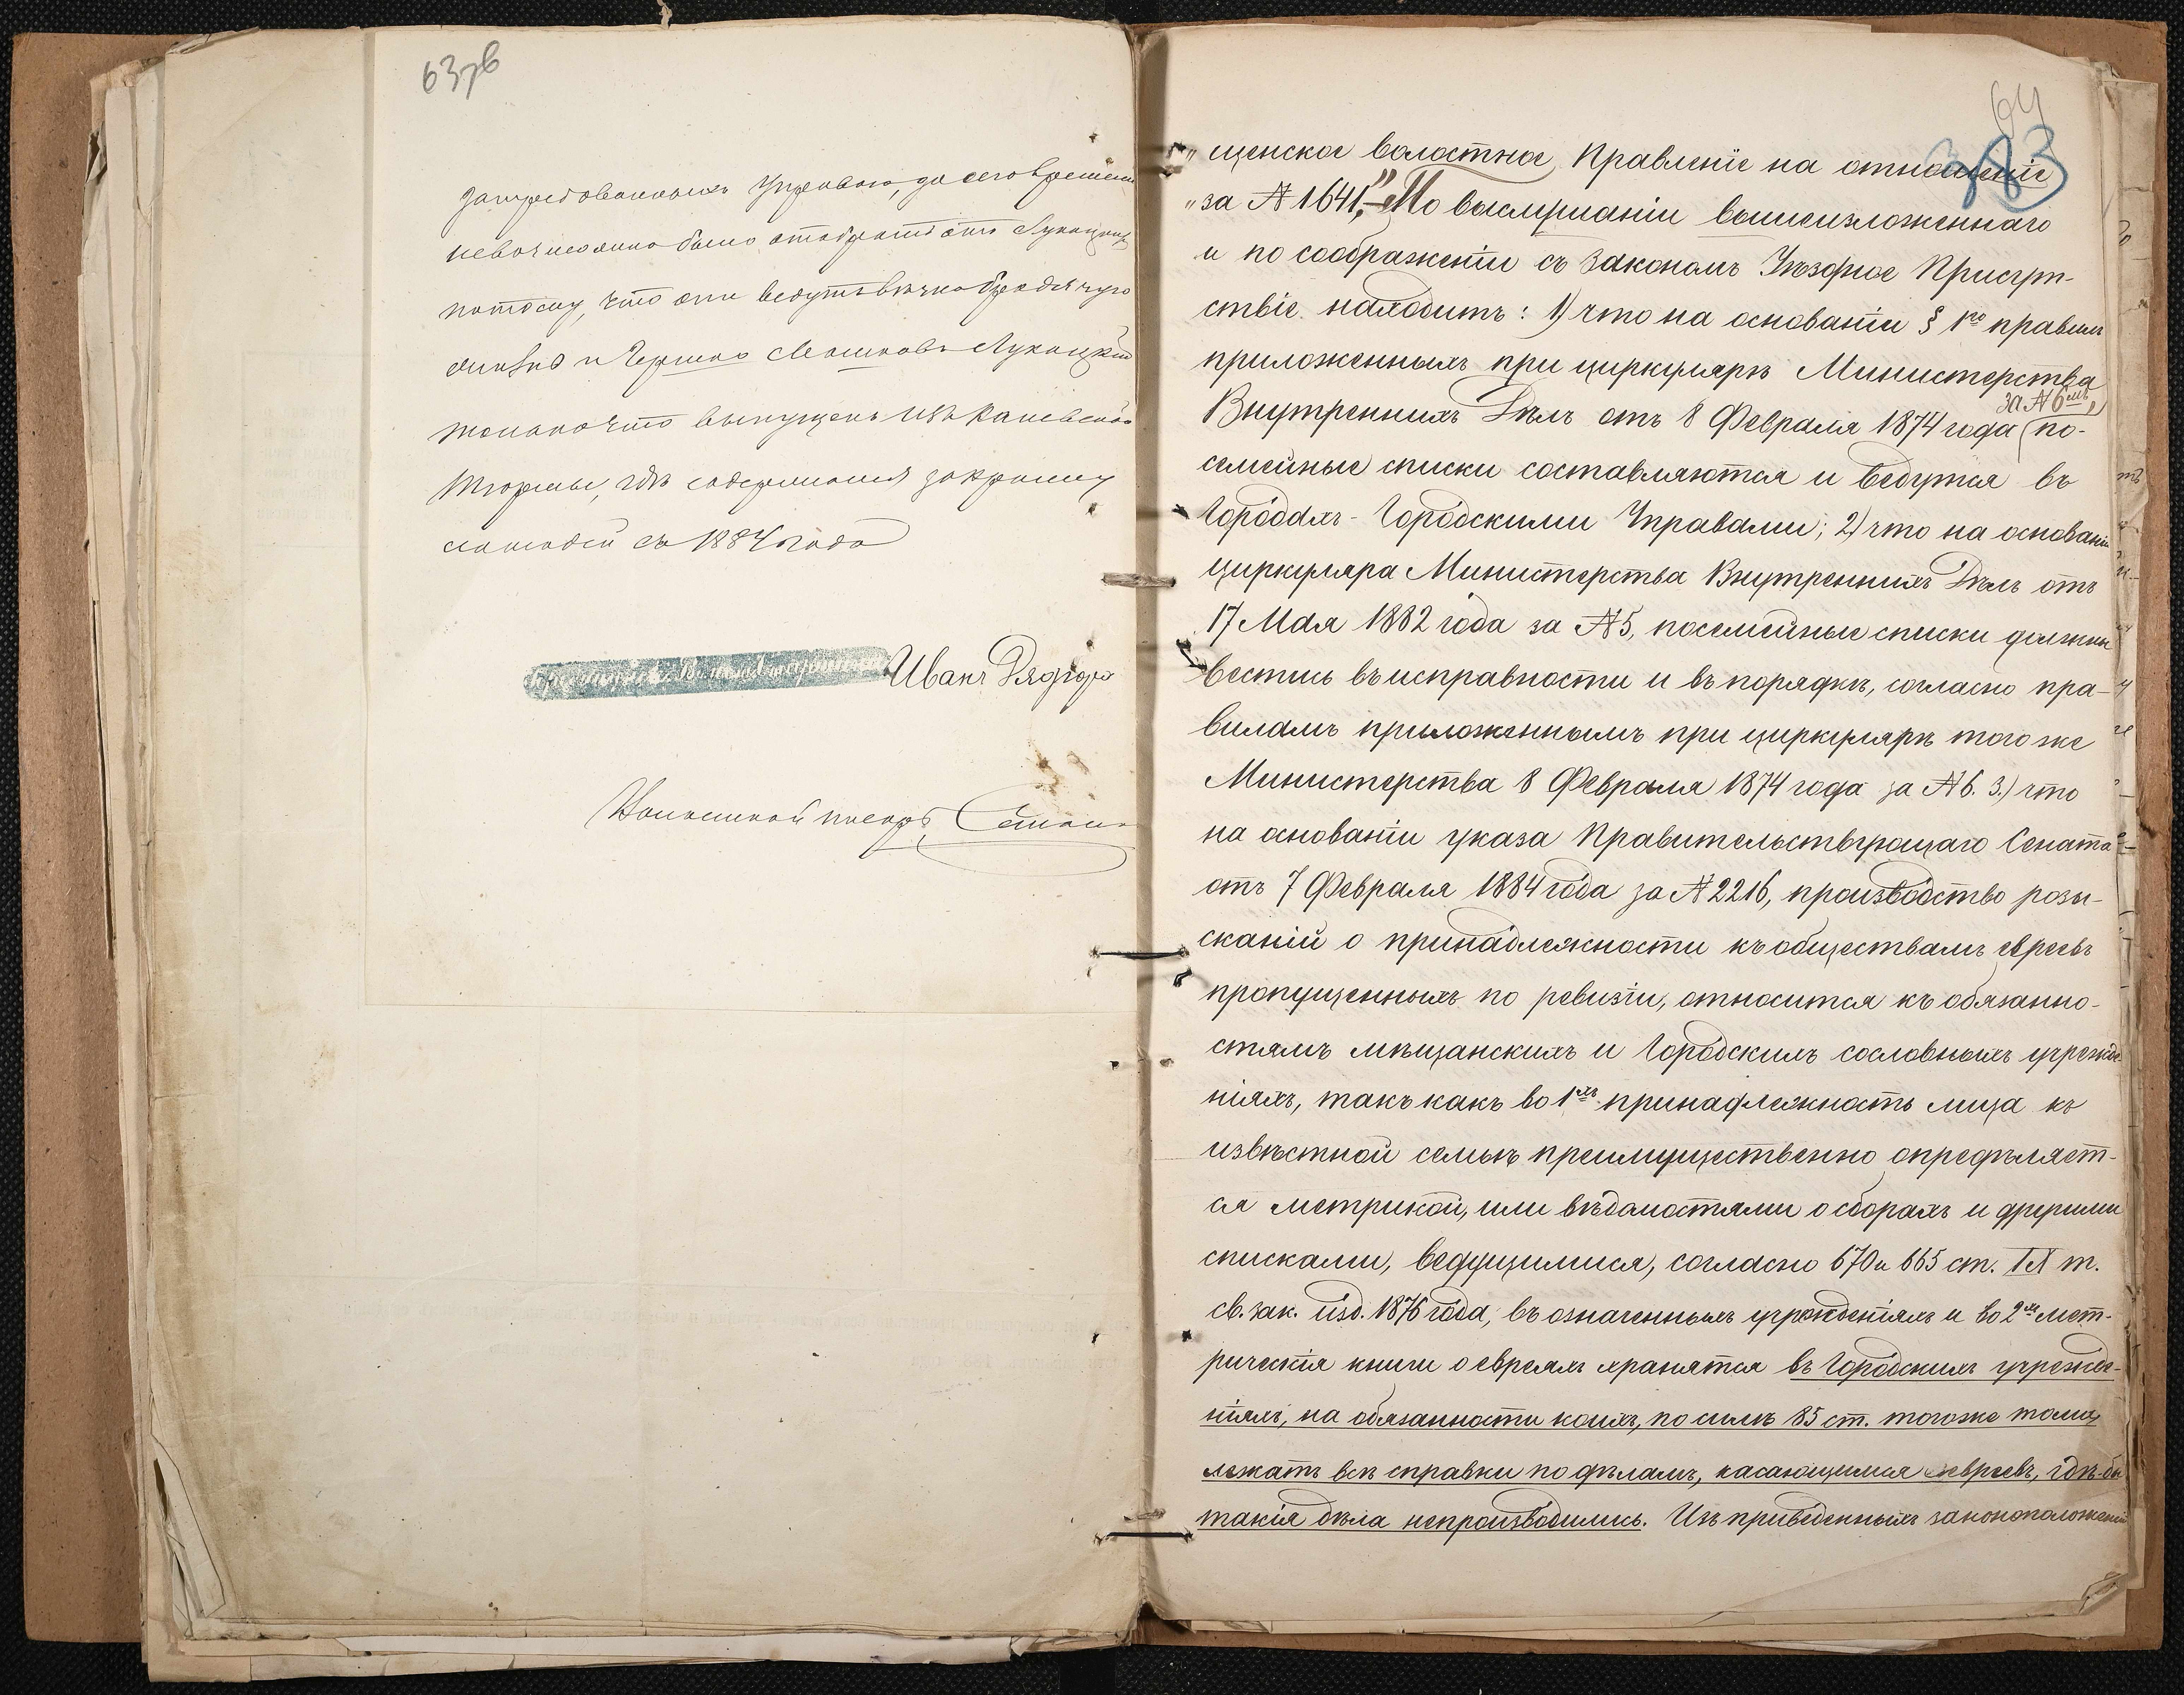 63зв
затребованныхъ Управою, до сего времени
невозможно было отобрать отъ Лукацкихъ
потому, что они ведутъ вѣчно бродячую
жизнь и Гершко Мошковъ Лукацкій
только что выпущенъ изъ Каневской
тюрьмы, гдѣ содержался за кражу
лошадей съ 1884 года
Волостной Старшина Иванъ Дядюра
Волостной писарь
64
383
„щенское волостное Правленіе на отношеніе
„за № 1641,"– По выслушаніи вышеизложеннаго
и по соображеніи съ закономъ Уѣздное Присут-
ствіе находитъ: 1) что на основаніи § 1го правилъ
приложенныхъ при циркулярѣ Министерства
за № 6мъ,
Внутреннихъ Дѣлъ отъ 8 Февраля 1874 года (по-
семейные списки составляются и ведутся въ
Городахъ - Городскими Управами; 2) что на основаніи
циркуляра Министерства Внутреннихъ Дѣлъ отъ
17 Мая 1882 года за № 5, посемейные списки должны
вестись въ исправности и въ порядкѣ, согласно пра-
виламъ приложеннымъ при циркулярѣ того же
Министерства 8 Февраля 1874 года за № 6. 3.) что
на основаніи указа Правительствующаго Сената
отъ 7 Февраля 1884 года за № 2216, производство розы-
сканій о принадлежности къ обществамъ евреевъ
пропущенныхъ по ревизіи, относится къ обязанно-
стямъ мѣщанскихъ и Городскихъ сословныхъ учрежде
ніяхъ, такъ какъ во 1хъ принадлежность лица къ
извѣстной семьѣ преимущественно опредѣляет-
ся метрикой, или вѣдомостями о сборахъ и другими
списками, ведущимися, согласно 670 и 665 ст. IX т.
св. зак. изд. 1876 года, въ означенныхъ учрежденіяхъ и во 2хъ мет-
рическія книги о евреяхъ хранятся въ Городскихъ учрежде-
ніяхъ, на обязанности коихъ, по силѣ 85 ст. того же тома,
лежатъ всѣ справки по дѣламъ, касающимся евреевъ, гдѣ-бы
такія дѣла непроизводились. Изъ приведенныхъ законоположеній